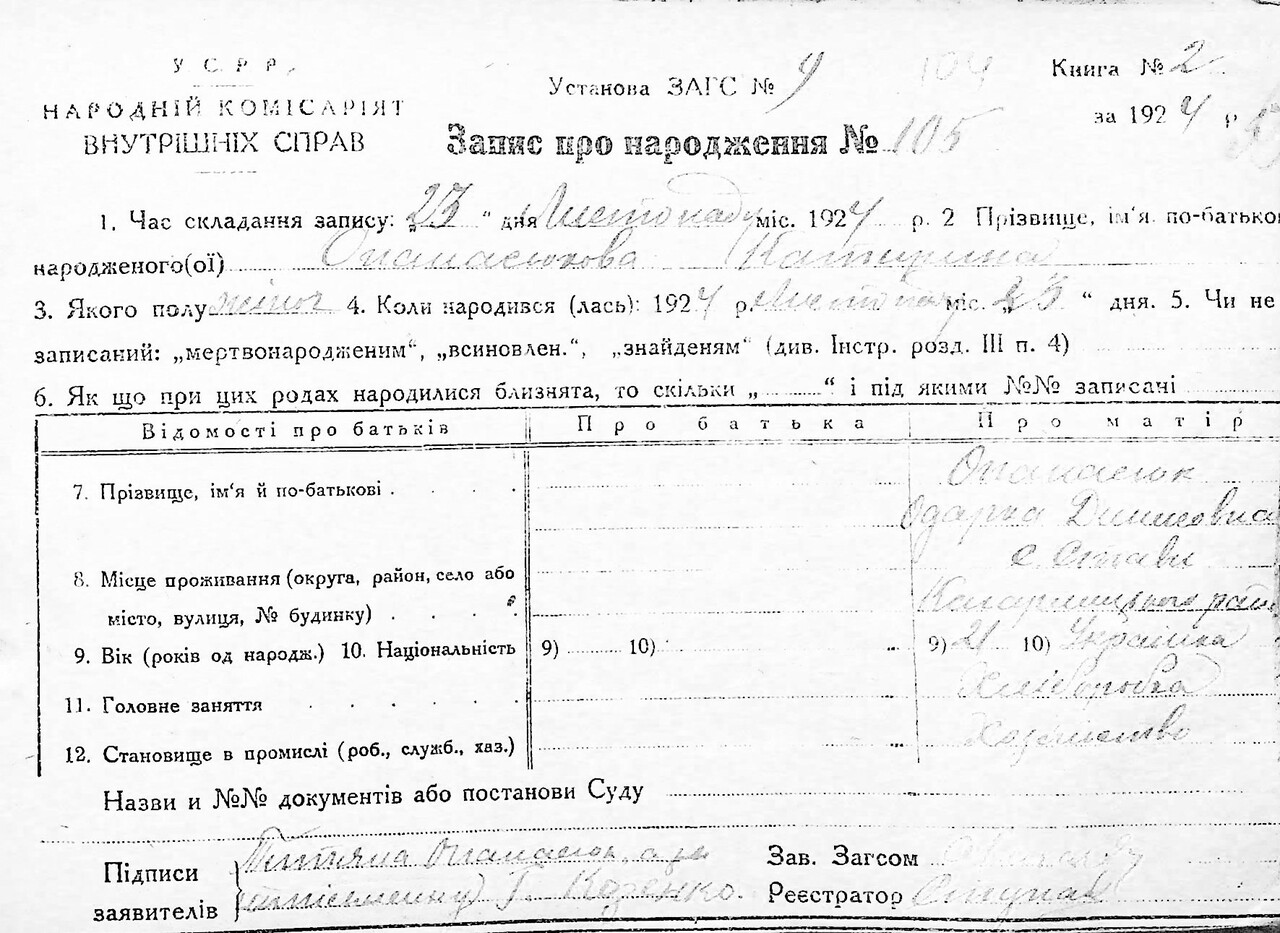 У С Р Р.
НАРОДНІЙ КОМІСАРІЯТ
ВНУТРІШНІХ СПРАВ
Установа ЗАГС № 9
104
Книга № 2
за 1924 р
Запис про народження № 105
1. Час складання запису: „23 " дня Листопаду міс. 1924 р. 2 Прізвище, ім'я по-батько
народженого(ої) Опанасюкова Катерина
3. Якого полу жіноч 4. Коли народився (лась): 1924 р. Листопад міс. „23 " дня. 5. Чи не
записаний: „мертвонародженим", „всиновлен.", „знайденям" (див. Інстр. розд. III п. 4)
6. Як що при цих родах народилися близнята, то скільки „ " і під якими №№ записачі
Відомості про батьків Про батька Про матір
7. Прізвище, ім'я й по-батькові . . . . Опанасюк
Одарка Денисовна
8. Місце проживання (округа, район, село або с. Стави
місто, вулиця, № будинку) . . . . Кагарлицького рай
9. Вік (років од народж.) 10. Національність 9) 10) 9) 21 10) Українка
11. Головне заняття . . . . . Хліборобка
12. Становище в промислі (роб., служб., хаз.) Хозяйство
Назви и №№ документів або постанови Суду
Підписи заявителів Тітяна Опанасюк, а за
Козенко.
Зав. Загсом
Реєстратор Ступак